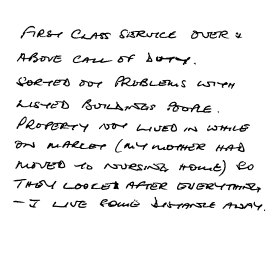 FIRST CLASS SERVICE OVER &
ABOVE CALL OF DUTY.
SORTED OUT PROBLEMS WITH
LISTED BUILDINGS PEOPLE.
PROPERTY NOT LIVED IN WHILE
ON MARKET (MY MOTHER HAD
MOVED TO NURSING HOME) SO
THEY LOOKED AFTER EVERYTHING
- I LIVE SOME DISTANCE AWAY.